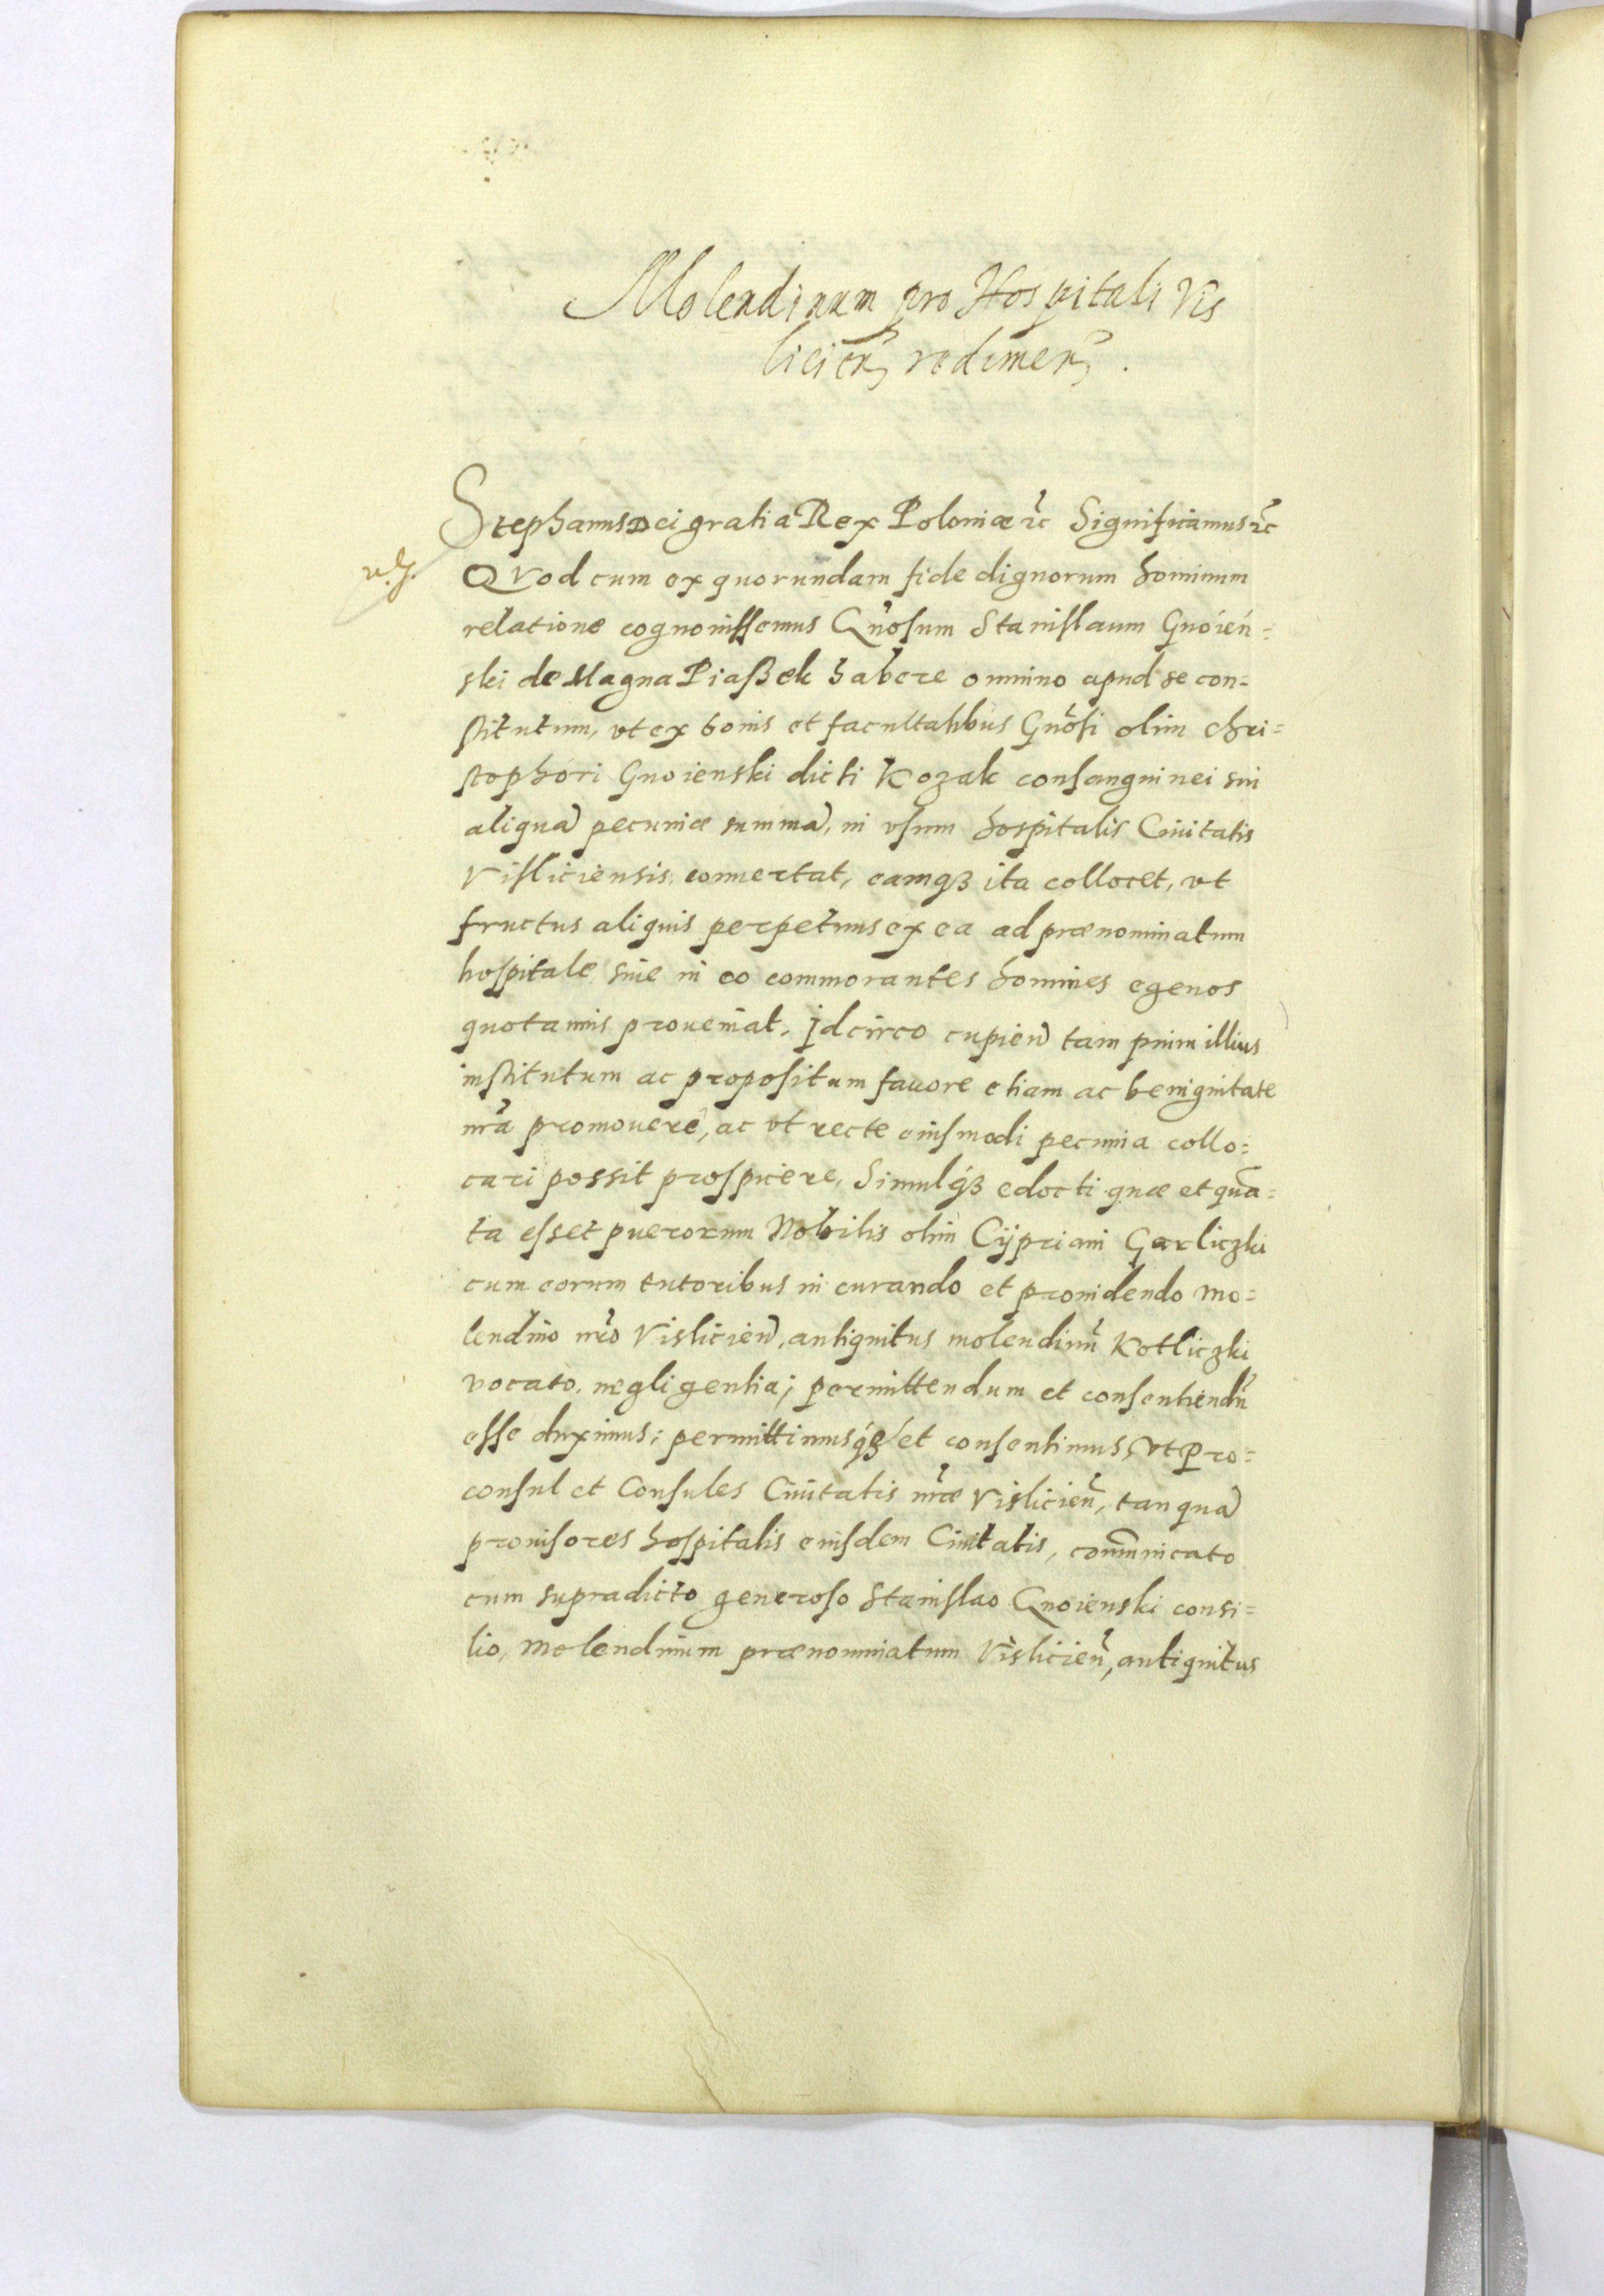 Molendinum pro Hospitali Vis
licien̄ redimen̄.
Stephanus Dei gratia Rex Poloniæ ec̃ Significamus ec̃
QVod cum ex quorundam fide dignorum hominum
relatione cognouissemus Gn̄osum Stanislaum Gnoień=
ski de Magna Piaßek habere omnino apud se con=
stitutum, vt ex bonis et facultatibus Gn̄osi olim Chri=
stophori Gnoienski dicti Kozak consanguinei sui
aliquā pecuniæ summā, in vsum hospitalis Ciuitatis
Visliciensis conuertat, eamqȝ ita collocet, vt
fructus aliquis perpetuus ex ea ad prænominatum
hospitale siue in eo commorantes homines egenos
quotannis proueniat, jdcirco cupien̄ tam pium illius
institutum ac propositum fauore etiam ac benignitate
nr̄a promouere, ac vt recte eiusmodi pecunia collo=
cari possit prospicere, Simulqȝ edocti quæ et quā=
ta esset puerorum Nobilis olim Cypriani Garliczki
cum eorum tutoribus in curando et prouidendo mo=
lendino nr̄o Vislicien̄, antiquitus molendinū Kotliczki
vocato, negligentia; permittendum et consentiendū
esse duximus; permittimusqȝ et consentimus, vt Pro=
consul et Consules Ciuitatis nr̄æ Vislicien̄, tanquā
prouisores hospitalis eiusdem Ciuitatis, com̄unicato
cum supradicto generoso Stanislao Gnoienski consi=
lio, Molendinum prænominatum Vislicien̄, antiquitus